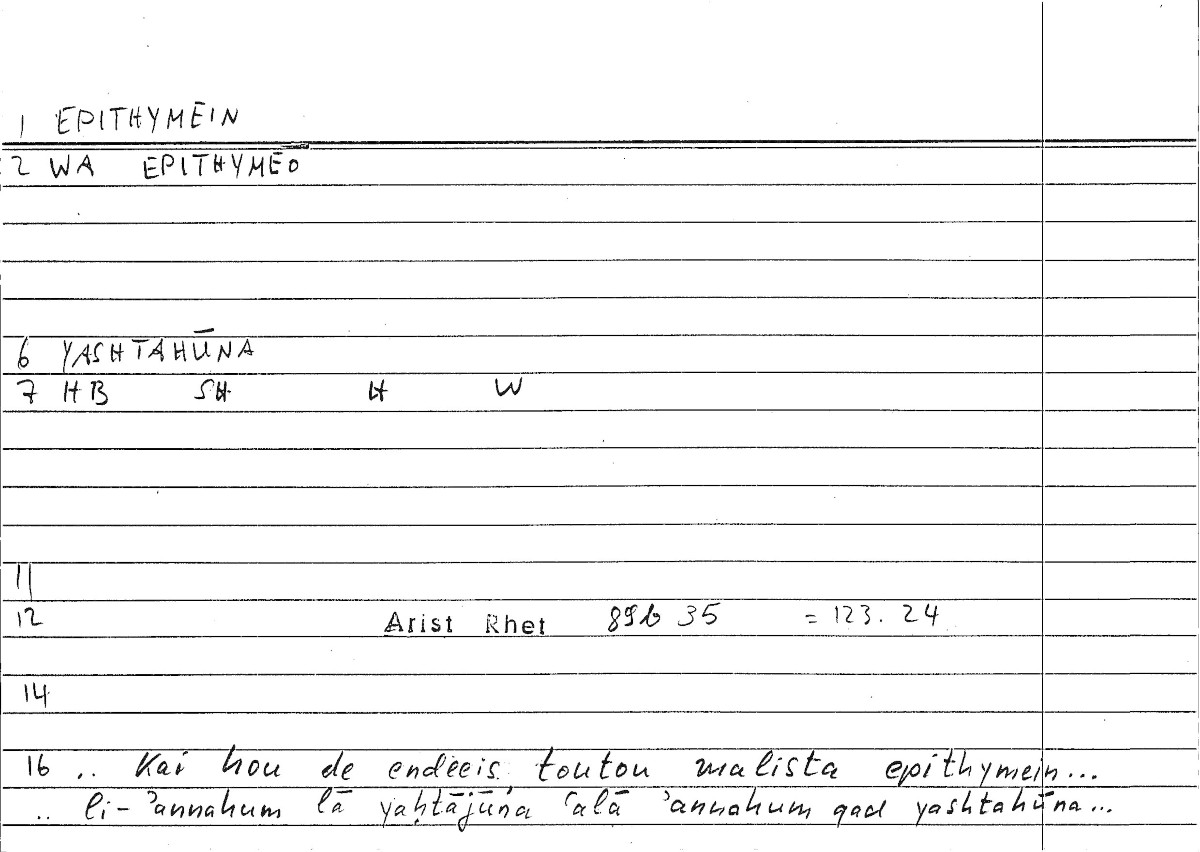 1 EPITHYMĒIN
2 WA EPITHYMĒO
6 YASHTAHŪNA
7 HB SH H W
11
12 Arist Rhet 89b 35 = 123. 24
14
16 .. Kai hou de endēeis toutou malista epithymein...
.. li-ʾannahum lā yaḥtājūna ʿalā ʾannahum qad yashtahūna...